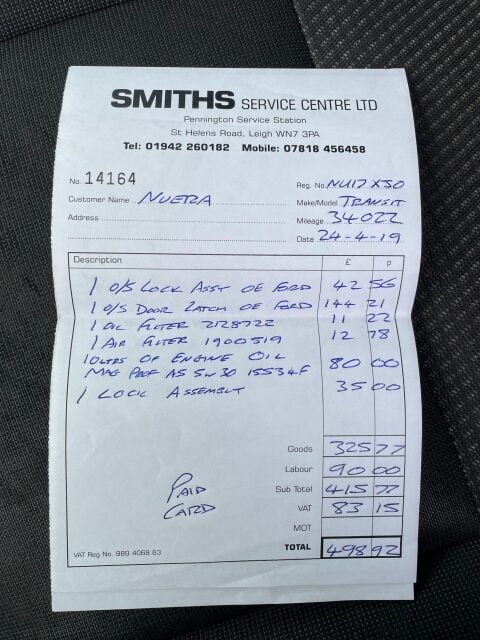 SMITHS SERVICE CENTRE LTD
Pennington Service Station
St Helens Road, Leigh WN7 3PA
Tel: 01942 260182 Mobile: 07818 456458
No. 14164
Reg. No. NU17 XSO
Customer Name NUERA
Make/Model TRANSIT
Address
Mileage 34022
Date 24-4-19
Description £ p
1 O/S LOCK ASSY OE FORD 42 56
1 O/S DOOR LATCH OE FORD 144 21
1 OIL FILTER 2128722 11 22
1 AIR FILTER 1900519 12 78
10LTRS OF ENGINE OIL 80 00
MAG PROF A5 5W30 15534F
1 LOCK ASSEMBLY 35 00
Goods 325 77
Labour 90 00
PAID
CARD
Sub Total 415 77
VAT 83 15
MOT
VAT Reg No. 989 4068 63
TOTAL 498 92